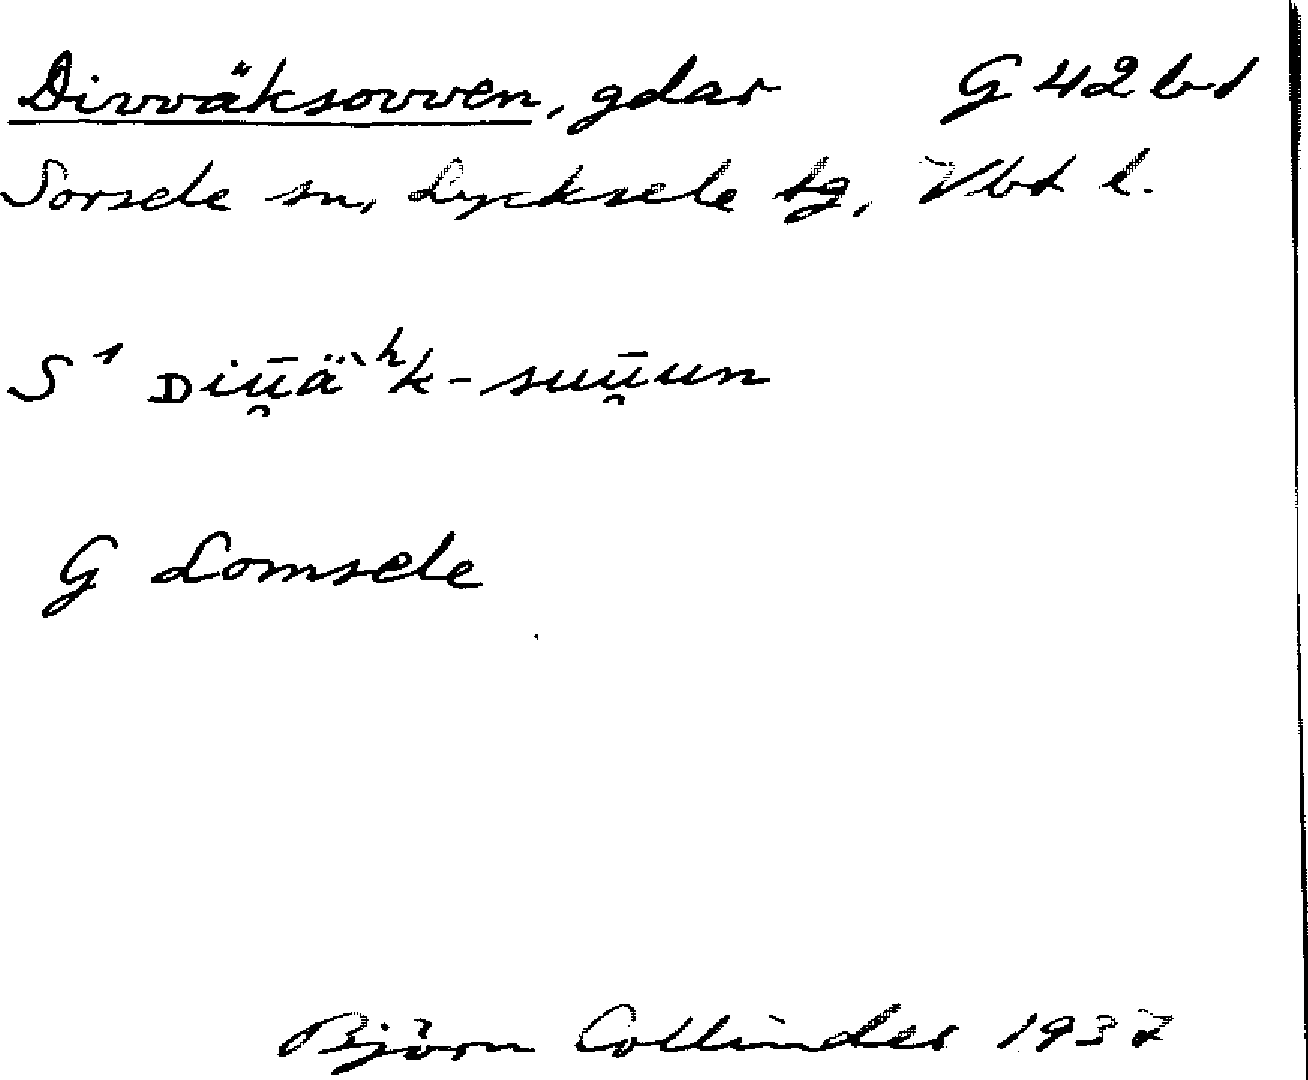 Divväksovven, gdar G 42 bd
Sorsele sn, Lycksele tg, Vbt l.
S¹ ᴅiū̯ä̀ʰk-suū̯un
G Lomsele
Björn Collinder 1937